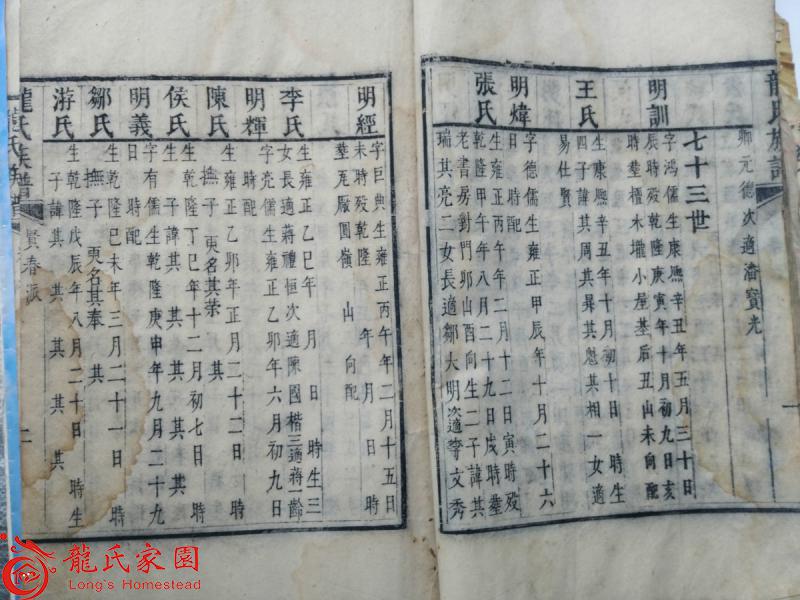 龍氏族譜
卿元德次適濟寶光
七十三世
明訓
字鴻儒生康熈辛丑年五月三十日
辰時歿乾隆庚寅年十月初九日亥
時塟檀木壠小屋基后丑山未向配
王氏
生康熈辛丑年十月初十日 時生
四子諱其周其昇其嵬其相一女適
易仕賢
明煒
字德儒生雍正甲辰年十月二十六
日時配
張氏
生雍正丙午年二月十二日寅時歿
乾隆甲午年八月二十九日戌時塟
老書房對門卯山酉向生二子諱其
瑞其亮二女長適鄒大明次適李文秀
明經
字巨典生雍正丙午年二月十五日
未時歿乾隆 年 月 日 時
塟瓦厰園嶺 山 向配
李氏
生雍正乙巳年 月 日 時生三
女長適蔣禮恒次適陳國楷三適蔣一齡
明輝
字亮儒生雍正乙卯年六月初九日
時配
陳氏
生雍正乙卯年正月二十二日 時
撫子 更名其荣
侯氏
生乾隆丁巳年十二月初七日 時
生 子諱其 其 其
明義
字有儒生乾隆庚申年九月二十九
日 時配
鄒氏
生乾隆己未年三月二十一日 時
撫子 更名其奉
游氏
生乾隆戊辰年八月二十日 時生
子諱其 其 其
龍氏族譜
賢春派
二
龍氏家園
Long's Homestead